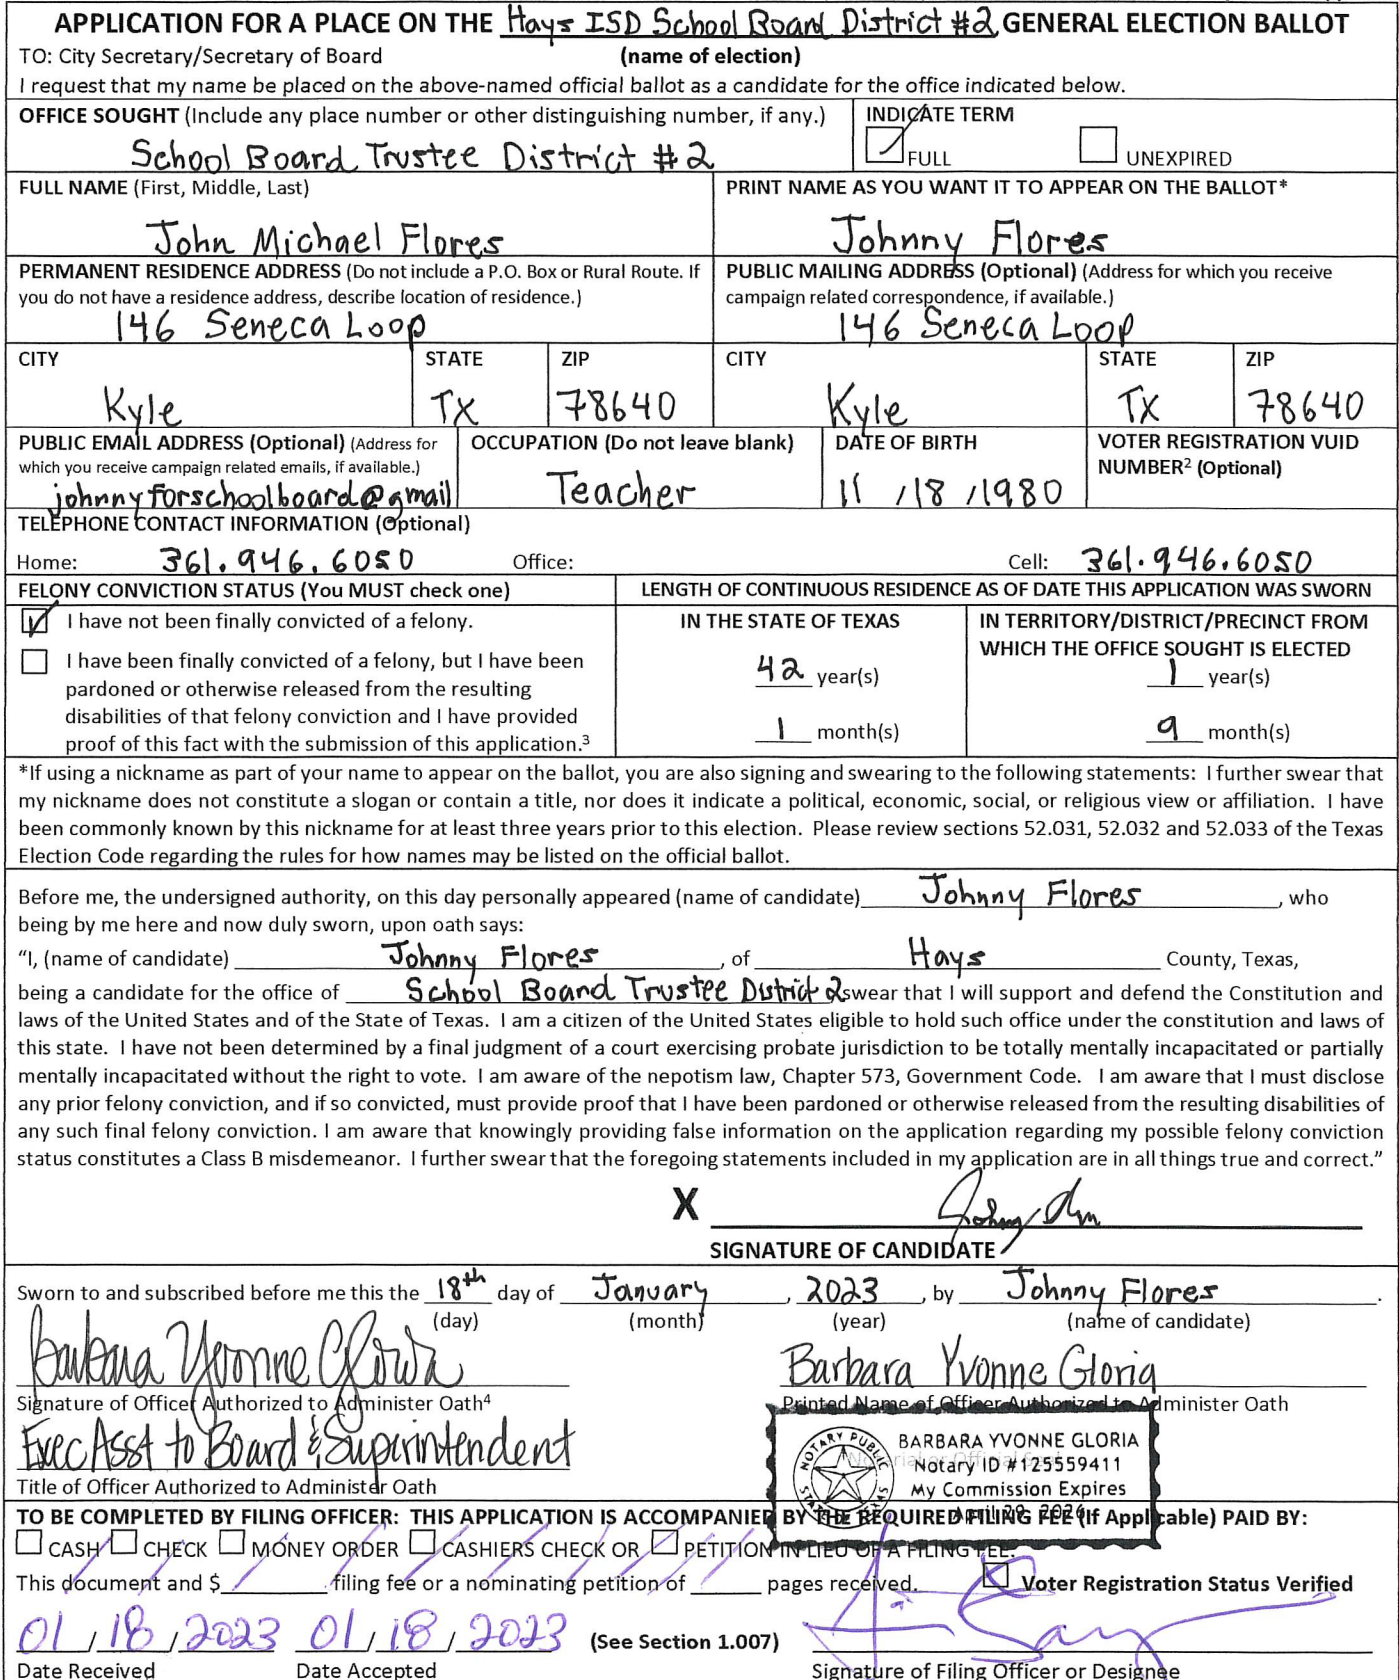 APPLICATION FOR A PLACE ON THE Hays ISD School Board District #2 GENERAL ELECTION BALLOT
TO: City Secretary/Secretary of Board (name of election)
I request that my name be placed on the above-named official ballot as a candidate for the office indicated below.
OFFICE SOUGHT (Include any place number or other distinguishing number, if any.) INDICATE TERM
School Board Trustee District #2 FULL UNEXPIRED
FULL NAME (First, Middle, Last) PRINT NAME AS YOU WANT IT TO APPEAR ON THE BALLOT*
John Michael Flores Johnny Flores
PERMANENT RESIDENCE ADDRESS (Do not include a P.O. Box or Rural Route. If PUBLIC MAILING ADDRESS (Optional) (Address for which you receive
you do not have a residence address, describe location of residence.) campaign related correspondence, if available.)
146 Seneca Loop 146 Seneca Loop
CITY STATE ZIP CITY STATE ZIP
Kyle TX 78640 Kyle TX 78640
PUBLIC EMAIL ADDRESS (Optional) (Address for OCCUPATION (Do not leave blank) DATE OF BIRTH VOTER REGISTRATION VUID
which you receive campaign related emails, if available.) NUMBER² (Optional)
johnnyforschoolboard@gmail Teacher 11 / 18 / 1980
TELEPHONE CONTACT INFORMATION (Optional)
Home: 361.946.6050 Office: Cell: 361.946.6050
FELONY CONVICTION STATUS (You MUST check one) LENGTH OF CONTINUOUS RESIDENCE AS OF DATE THIS APPLICATION WAS SWORN
I have not been finally convicted of a felony. IN THE STATE OF TEXAS IN TERRITORY/DISTRICT/PRECINCT FROM
WHICH THE OFFICE SOUGHT IS ELECTED
I have been finally convicted of a felony, but I have been
pardoned or otherwise released from the resulting 42 year(s) 1 year(s)
disabilities of that felony conviction and I have provided
proof of this fact with the submission of this application.³ 1 month(s) 9 month(s)
*If using a nickname as part of your name to appear on the ballot, you are also signing and swearing to the following statements: I further swear that
my nickname does not constitute a slogan or contain a title, nor does it indicate a political, economic, social, or religious view or affiliation. I have
been commonly known by this nickname for at least three years prior to this election. Please review sections 52.031, 52.032 and 52.033 of the Texas
Election Code regarding the rules for how names may be listed on the official ballot.
Before me, the undersigned authority, on this day personally appeared (name of candidate) Johnny Flores, who
being by me here and now duly sworn, upon oath says:
"I, (name of candidate) Johnny Flores, of Hays County, Texas,
being a candidate for the office of School Board Trustee District 2 swear that I will support and defend the Constitution and
laws of the United States and of the State of Texas. I am a citizen of the United States eligible to hold such office under the constitution and laws of
this state. I have not been determined by a final judgment of a court exercising probate jurisdiction to be totally mentally incapacitated or partially
mentally incapacitated without the right to vote. I am aware of the nepotism law, Chapter 573, Government Code. I am aware that I must disclose
any prior felony conviction, and if so convicted, must provide proof that I have been pardoned or otherwise released from the resulting disabilities of
any such final felony conviction. I am aware that knowingly providing false information on the application regarding my possible felony conviction
status constitutes a Class B misdemeanor. I further swear that the foregoing statements included in my application are in all things true and correct."
X
SIGNATURE OF CANDIDATE
Sworn to and subscribed before me this the 18th day of January, 2023, by Johnny Flores.
(day) (month) (year) (name of candidate)
Barbara Yvonne Gloria Barbara Yvonne Gloria
Signature of Officer Authorized to Administer Oath⁴ Printed Name of Officer Authorized to Administer Oath
Exec Asst to Board & Superintendent
Title of Officer Authorized to Administer Oath
NOTARY PUBLIC STATE OF TEXAS
BARBARA YVONNE GLORIA
Notary ID #125559411
My Commission Expires
TO BE COMPLETED BY FILING OFFICER: THIS APPLICATION IS ACCOMPANIED BY THE REQUIRED FILING FEE (If Applicable) PAID BY:
CASH CHECK MONEY ORDER CASHIERS CHECK OR PETITION IN LIEU OF A FILING FEE.
This document and $ filing fee or a nominating petition of pages received. Voter Registration Status Verified
01 / 18 / 2023 01 / 18 / 2023 (See Section 1.007)
Date Received Date Accepted Signature of Filing Officer or Designee